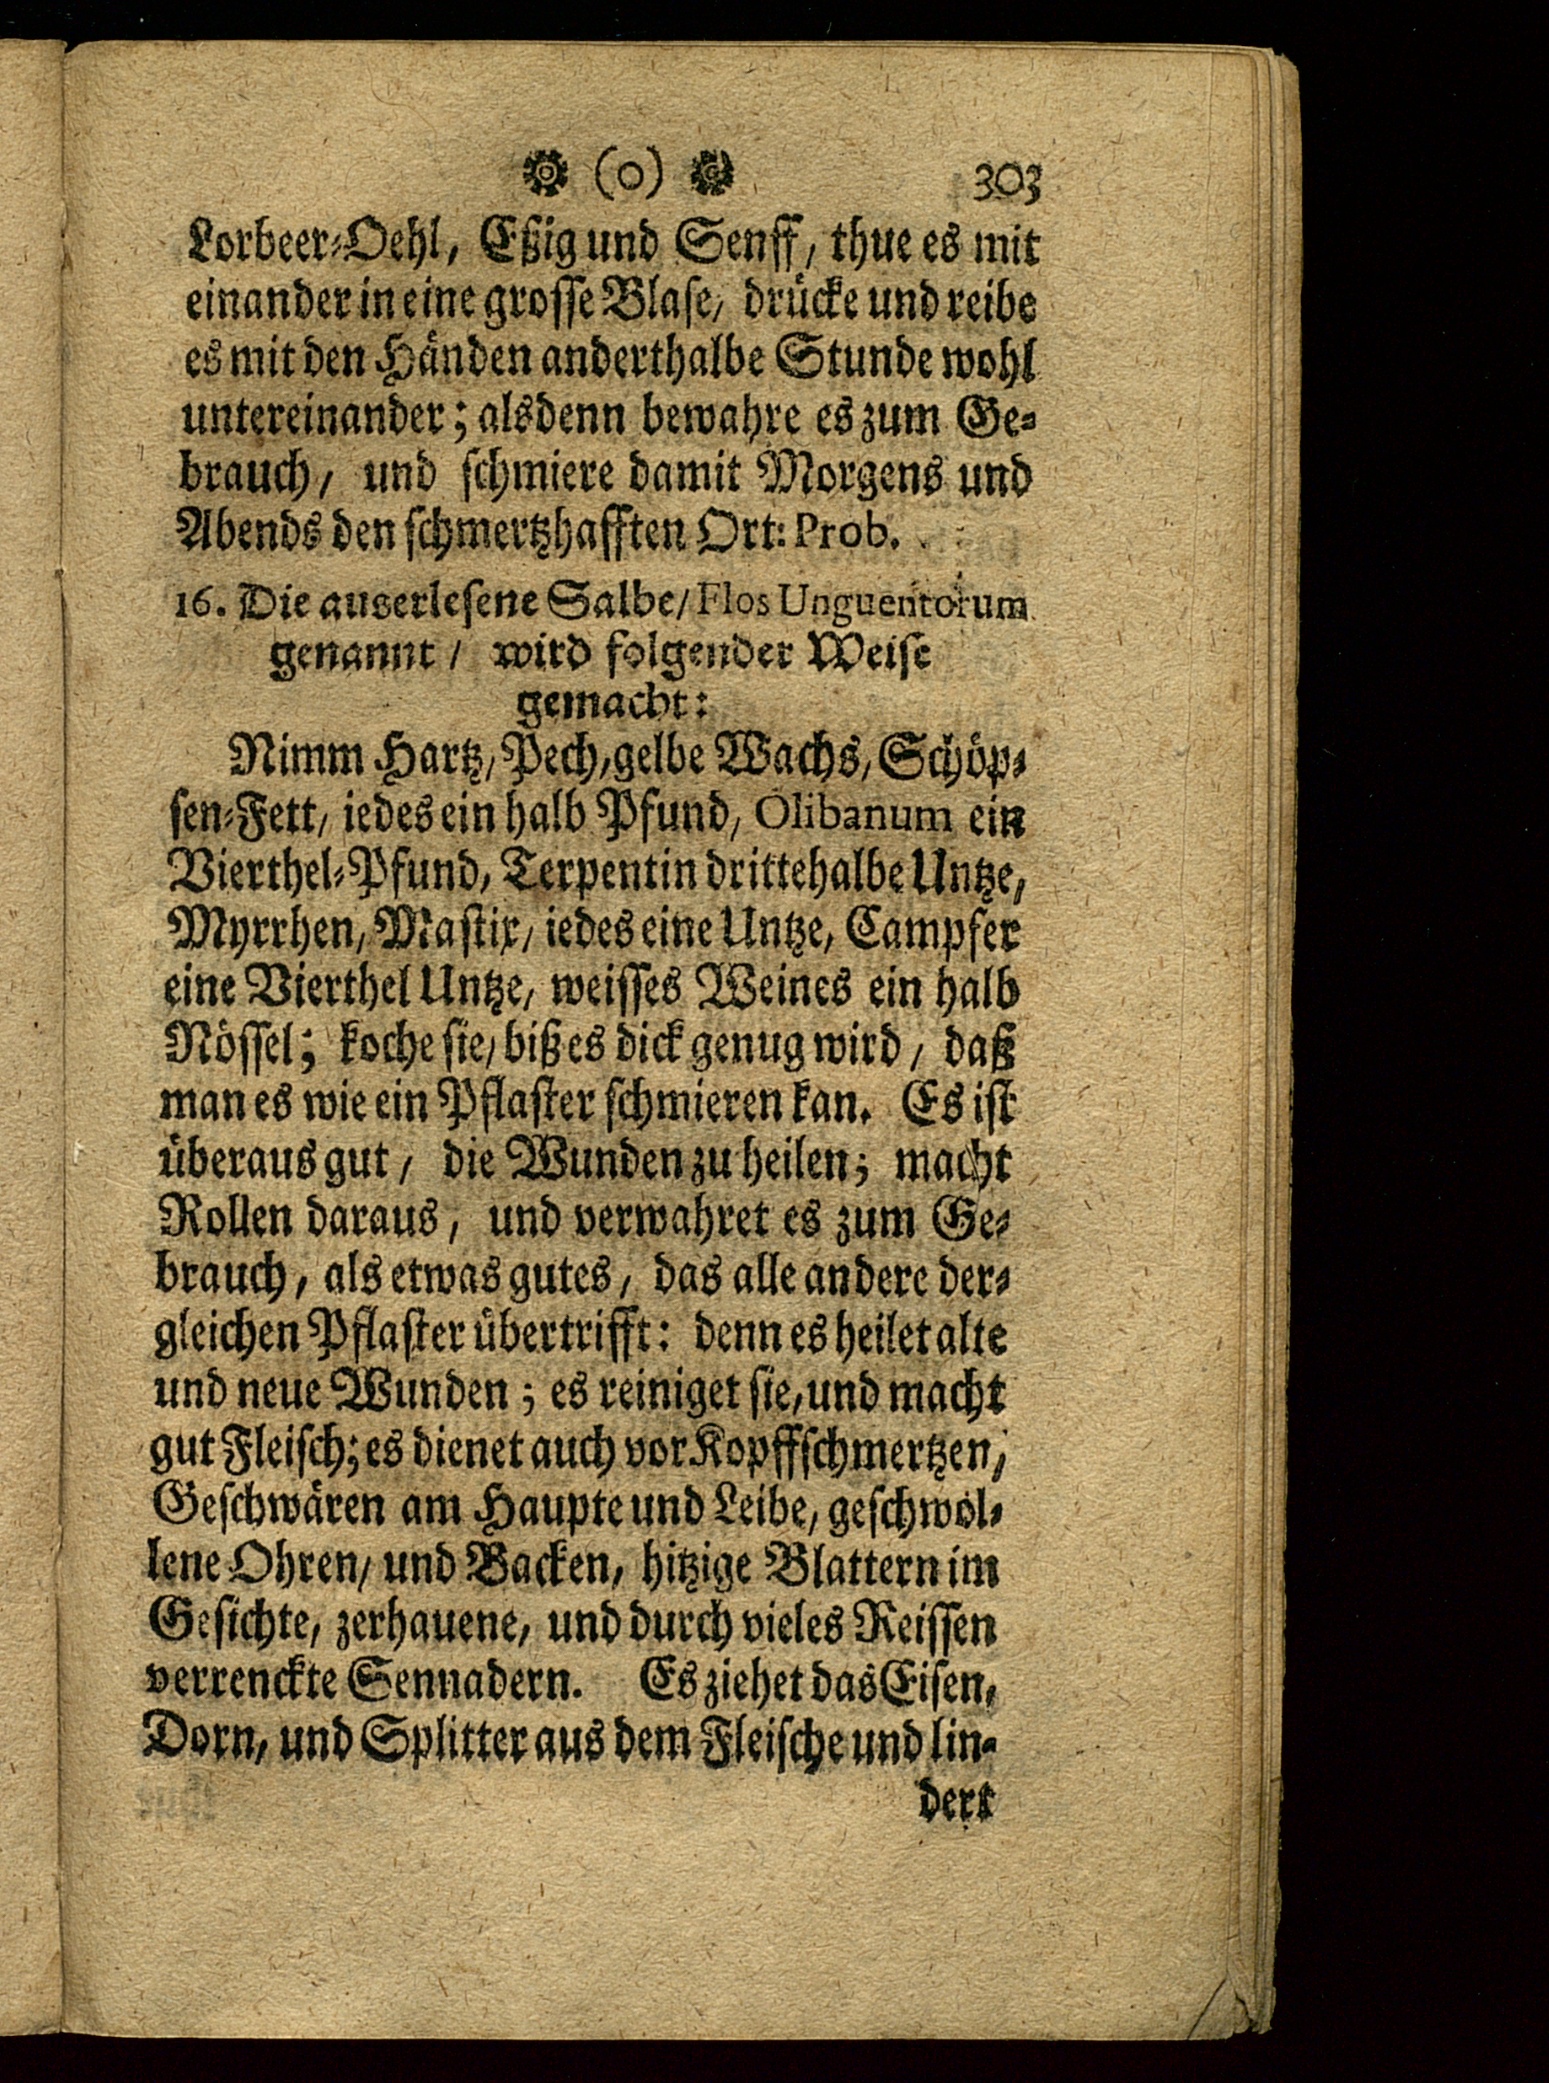 (o) 303
Lorbeer-Oehl, Eßig und Senff, thue es mit
einander in eine grosse Blase, drücke und reibe
es mit den Händen anderthalbe Stunde wohl
untereinander; alsdenn bewahre es zum Ge-
brauch, und schmiere damit Morgens und
Abends den schmertzhafften Ort: Prob.
16. Die auserlesene Salbe/ Flos Unguentorum
genannt / wird folgender Weise
gemacht:
Nimm Hartz, Pech, gelbe Wachs, Schöp-
sen-Fett, iedes ein halb Pfund, Olibanum ein
Vierthel-Pfund, Terpentin drittehalbe Untze,
Myrrhen, Mastix, iedes eine Untze, Campfer
eine Vierthel Untze, weisses Weines ein halb
Nössel; koche sie, biß es dick genug wird, daß
man es wie ein Pflaster schmieren kan. Es ist
überaus gut, die Wunden zu heilen; macht
Rollen daraus, und verwahret es zum Ge-
brauch, als etwas gutes, das alle andere der-
gleichen Pflaster übertrifft: denn es heilet alte
und neue Wunden; es reiniget sie, und macht
gut Fleisch; es dienet auch vor Kopffschmertzen,
Geschwären am Haupte und Leibe, geschwol-
lene Ohren, und Backen, hitzige Blattern im
Gesichte, zerhauene, und durch vieles Reissen
verrenckte Sennadern. Es ziehet das Eisen,
Dorn, und Splitter aus dem Fleische und lin-
dert